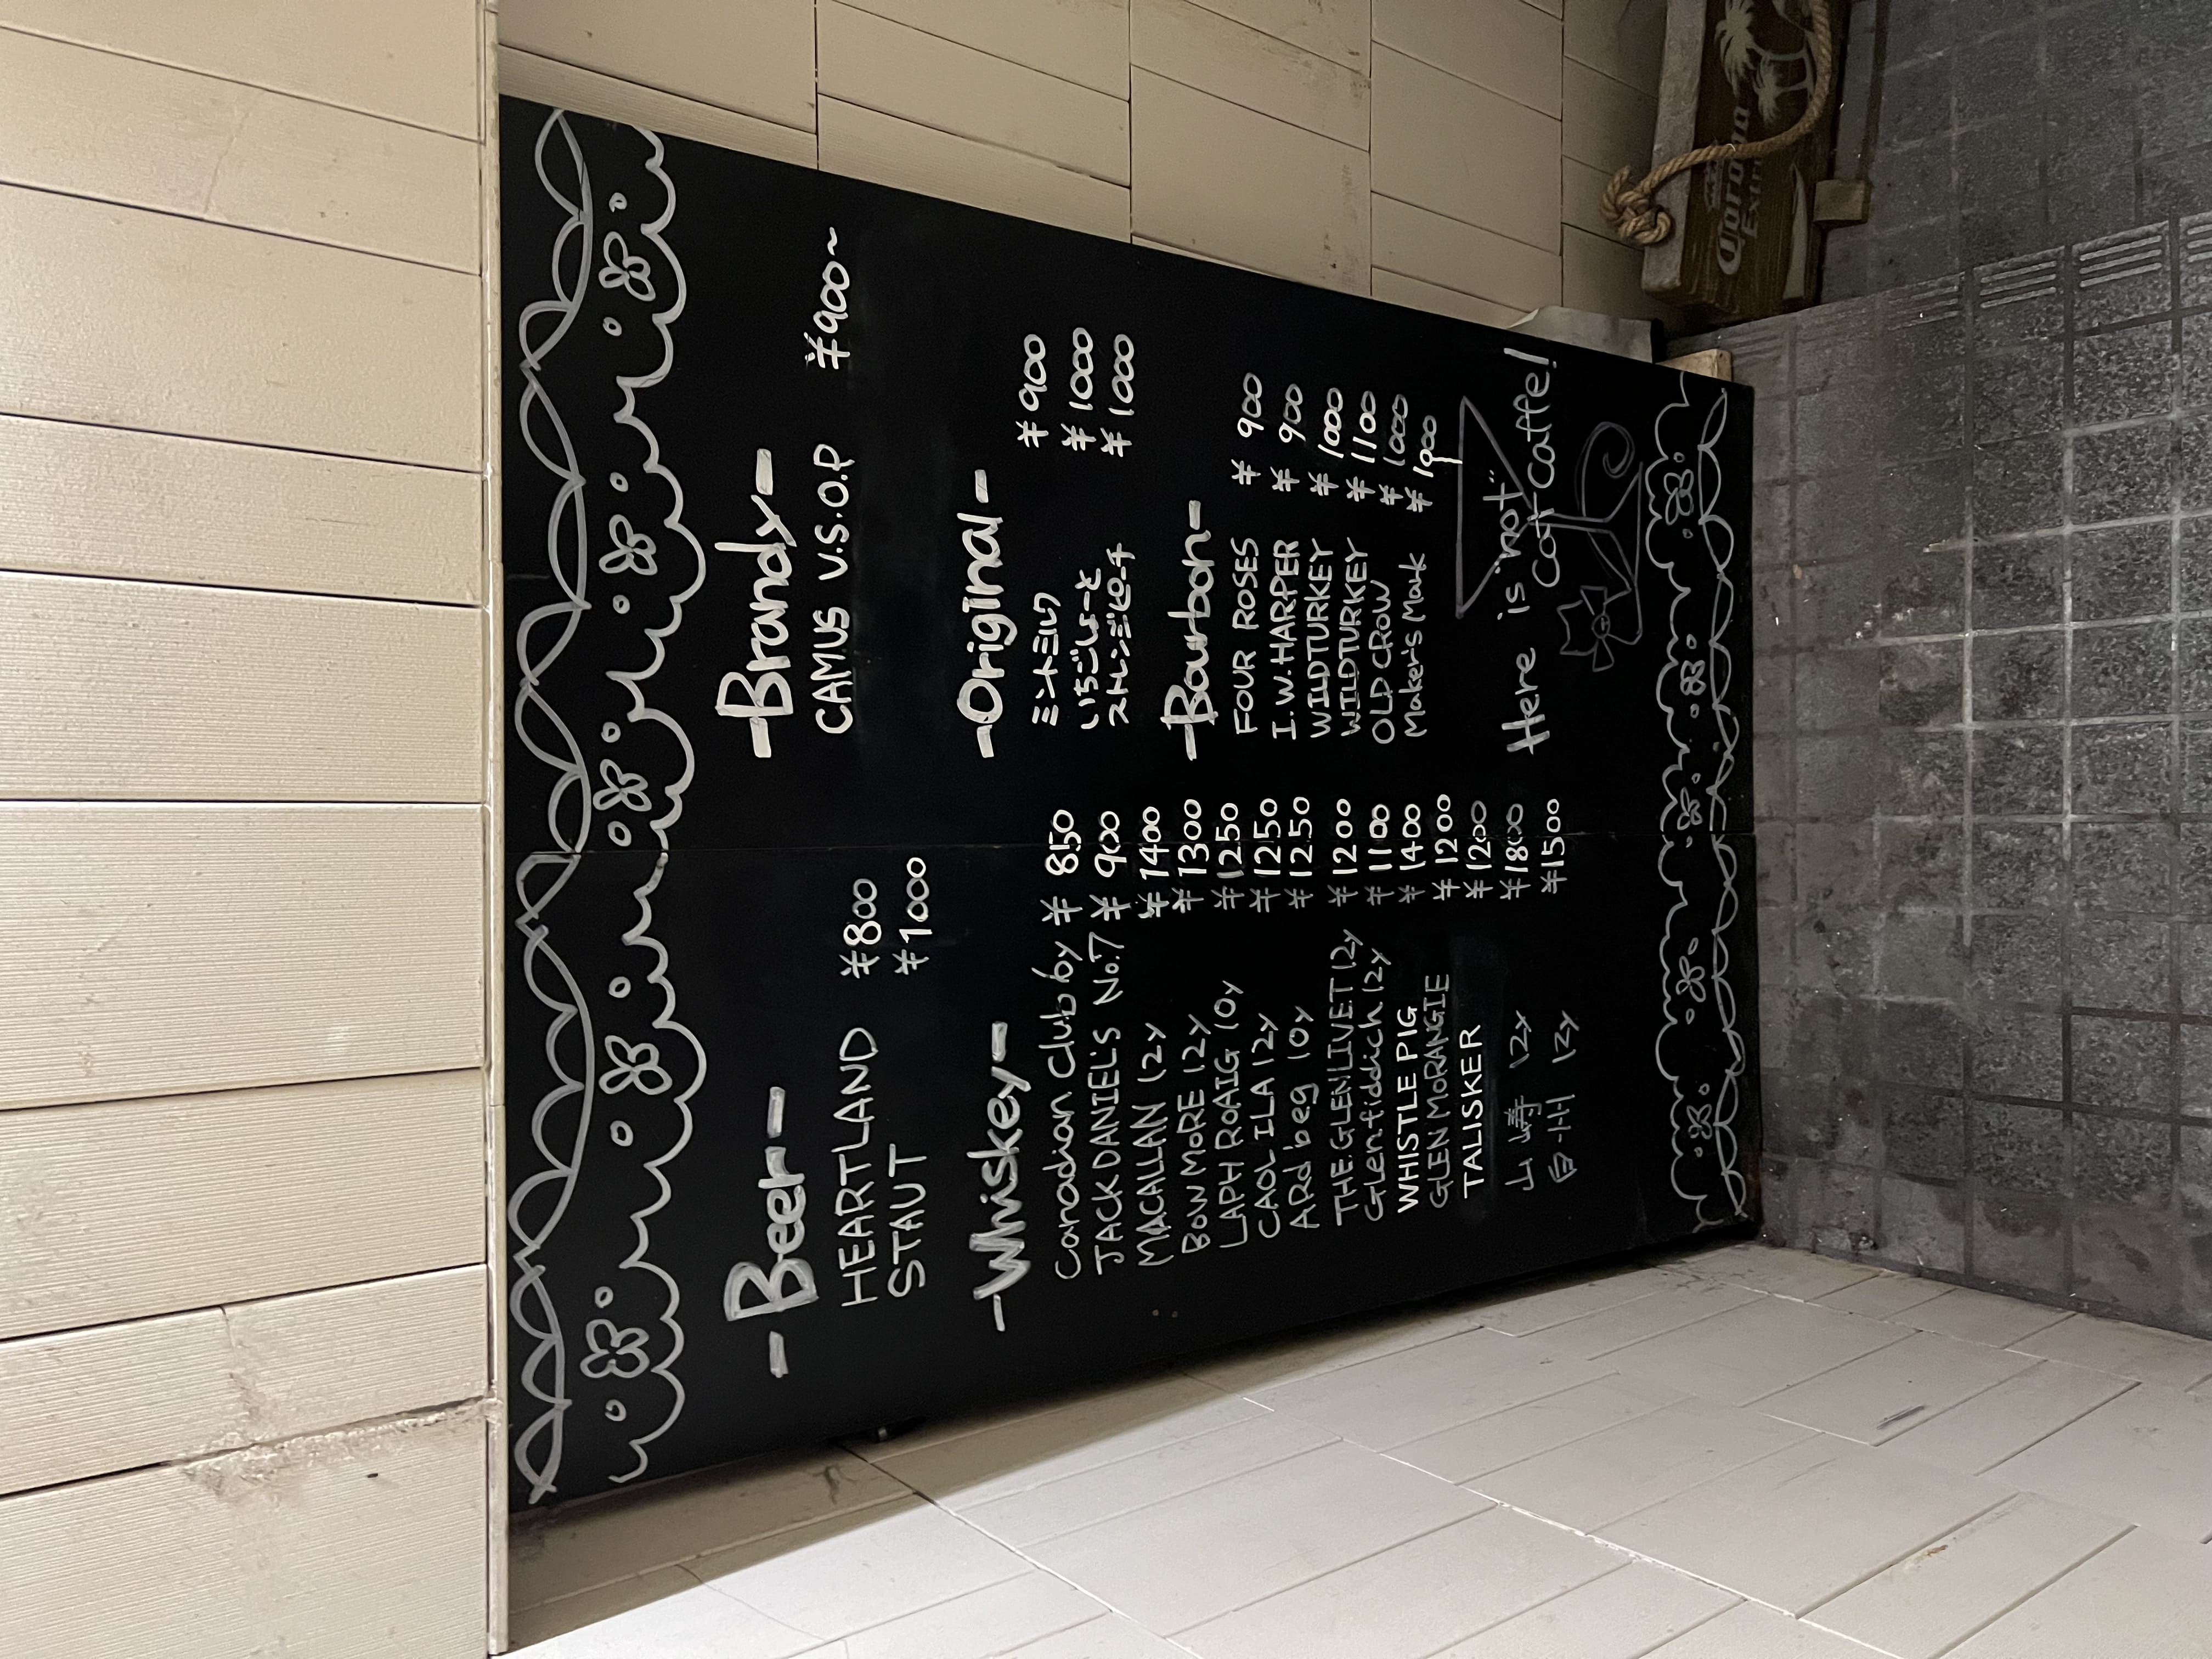 -Beer-
HEARTLAND ¥800
STAUT ¥1000
-Whiskey-
Canadian Club 6y ¥ 850
JACK DANIEL'S No.7 ¥ 900
MACALLAN 12y ¥ 1400
BOWMoRE 12y ¥ 1300
LAPH RoAIG 10y ¥1250
CAOL ILA 12y ¥1250
ARdbeg 10y ¥1250
THE.GLENLIVET 12y ¥1200
Glenfiddich 12y ¥ 1100
WHISTLE PIG ¥ 1400
GLEN MoRANGIE ¥ 1200
TALISKER ¥1200
山崎 12y ¥1800
白州 12y ¥1500
-Brandy-
CAMUS V.S.O.P ¥900~
-Original-
ミントミルク ¥900
いちごしょーと ¥1000
ストレンジピーチ ¥1000
-Bourbon-
FOUR ROSES ¥ 900
I.W.HARPER ¥ 900
WILDTURKEY ¥ 1000
WILDTURKEY ¥ 1100
OLD CROW ¥ 1000
Maker's Mark ¥ 1000
Here is "not"
cat caffe!
Corona
Extra